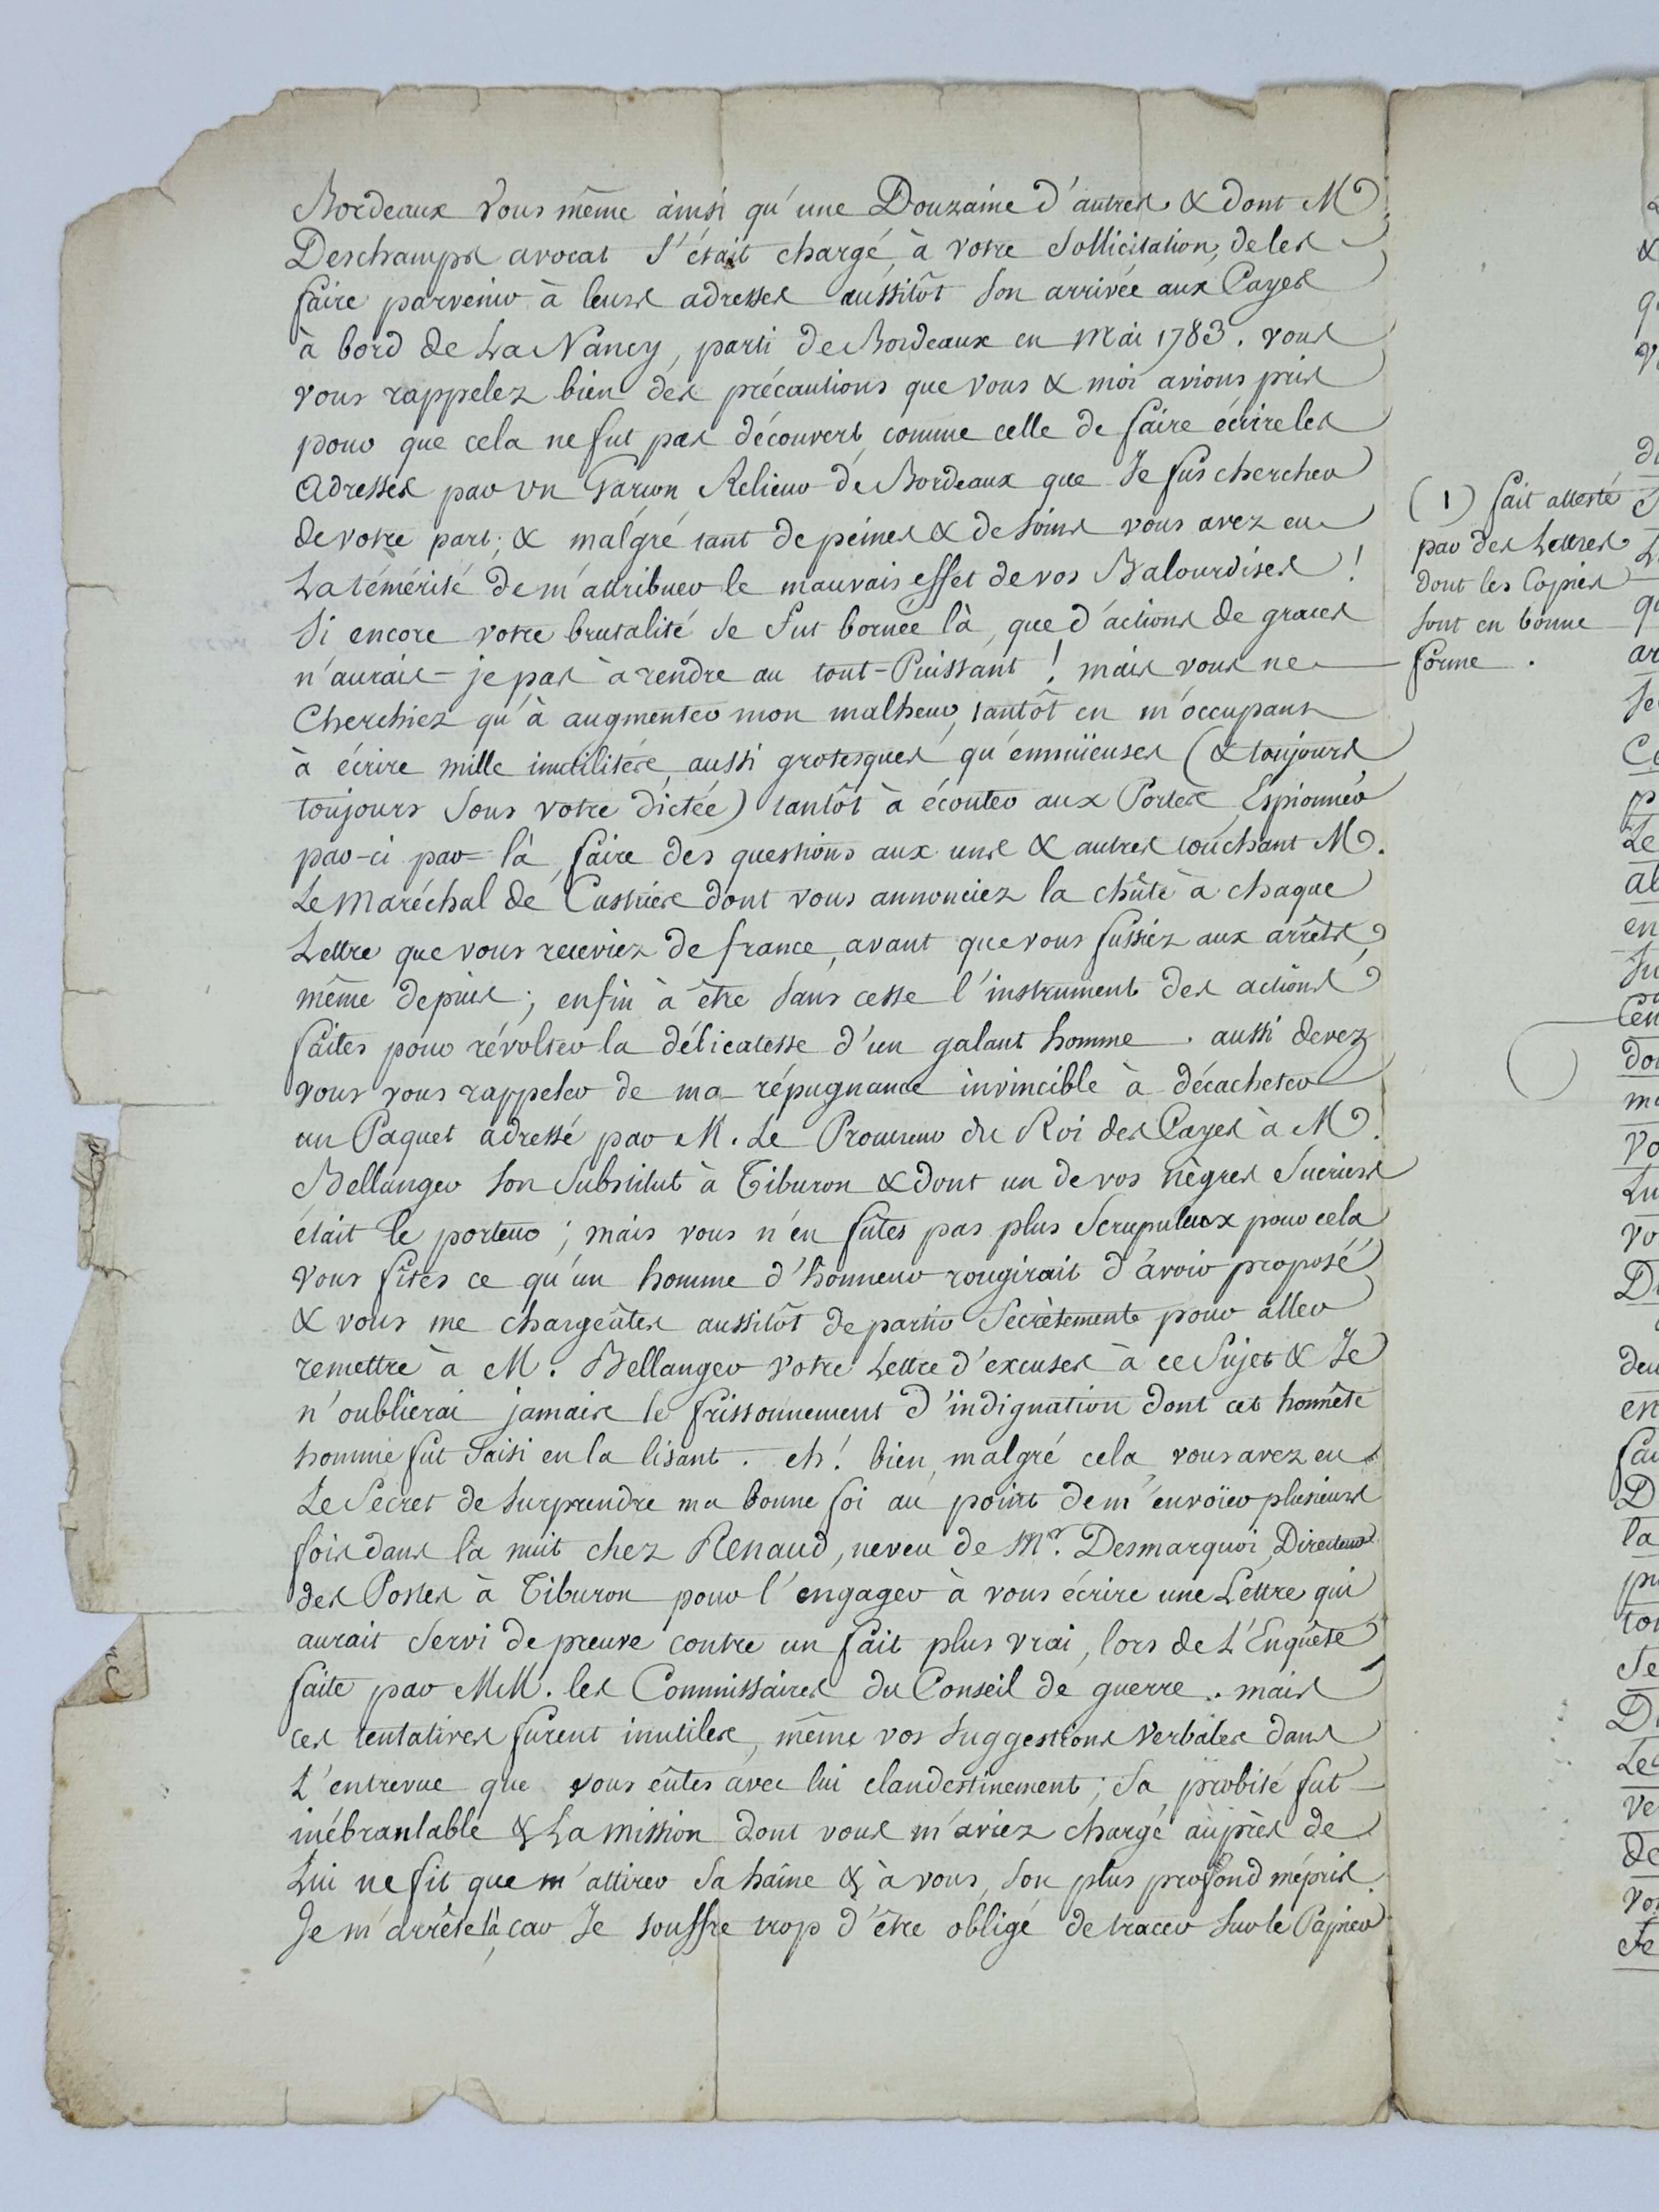 Bordeaux vous même ainsi qu'une Douzaine d'autres & dont M.
Deschamps avocat s'était chargé, à votre sollicitation, de les
faire parvenir à leurs adresses aussitôt son arrivée aux Cayes
à bord de La Nancy, parti de Bordeaux en Mai 1783. vous
vous rappelez bien des précautions que vous & moi avions pris
pour que cela ne fut pas découvert, comme celle de faire écrire les
Adresses par un Garçon Relieur de Bordeaux que Je fus chercher
de votre part; & malgré tant de peines & de soins vous avez eu
La témérité de m'attribuer le mauvais effet de vos Balourdises!
Si encore votre brutalité se fut bornée là, que d'actions de graces
n'aurais-je pas à rendre au tout-Puissant! mais vous ne
Cherchiez qu'à augmenter mon malheur, tantôt en m'occupant
à écrire mille inutilités, aussi grotesques qu'ennüieuses (& toujours
toujours sous votre dictée) tantôt à écouter aux Portes, Espionner
par-ci par-là, faire des questions aux uns & autres touchant M.
Le Maréchal de Castries dont vous annonciez la chûte à chaque
Lettre que vous receviez de france, avant que vous fussiez aux arrêts,
même depuis; enfin à être sans cesse l'instrument des actions
faites pour révolter la délicatesse d'un galant homme. aussi devez
vous vous rappeler de ma répugnance invincible à décacheter
un Paquet adressé par M. Le Procureur du Roi des Cayes à M.
Bellanger son Substitut à Tiburon & dont un de vos nègres Sucriers
était le porteur; mais vous n'en fûtes pas plus Scrupuleux pour cela
vous fîtes ce qu'un homme d'honneur rougirait d'avoir proposé
& vous me chargeâtes aussitôt de partir Secrètement pour aller
remettre à M. Bellanger votre Lettre d'excuses à ce Sujet & Je
n'oublierai jamais le frissonnement d'indignation dont cet honnête
homme fut saisi en la lisant. eh! bien, malgré cela, vous avez eu
Le Secret de surprendre ma bonne foi au point de m'envoïer plusieurs
fois dans la nuit chez Renaud, neveu de Mr. Desmarquoi, Directeur
des Postes à Tiburon pour l'engager à vous écrire une Lettre qui
aurait servi de preuve contre un fait plus vrai, lors de L'Enquête
faite par MM. les Commissaires du Conseil de guerre. mais
ces tentatives furent inutiles, même vos suggestions Verbales dans
L'entrevue que vous eûtes avec lui clandestinement; sa probité fut
inébranlable & La Mission dont vous m'aviez chargé auprès de
Lui ne fit que m'attirer sa haîne & à vous, son plus profond mépris.
Je m'arrête là, car Je souffre trop d'être obligé de tracer sur le Papier
(1) fait attesté
par des Lettres
dont les Copies
sont en bonne
forme.